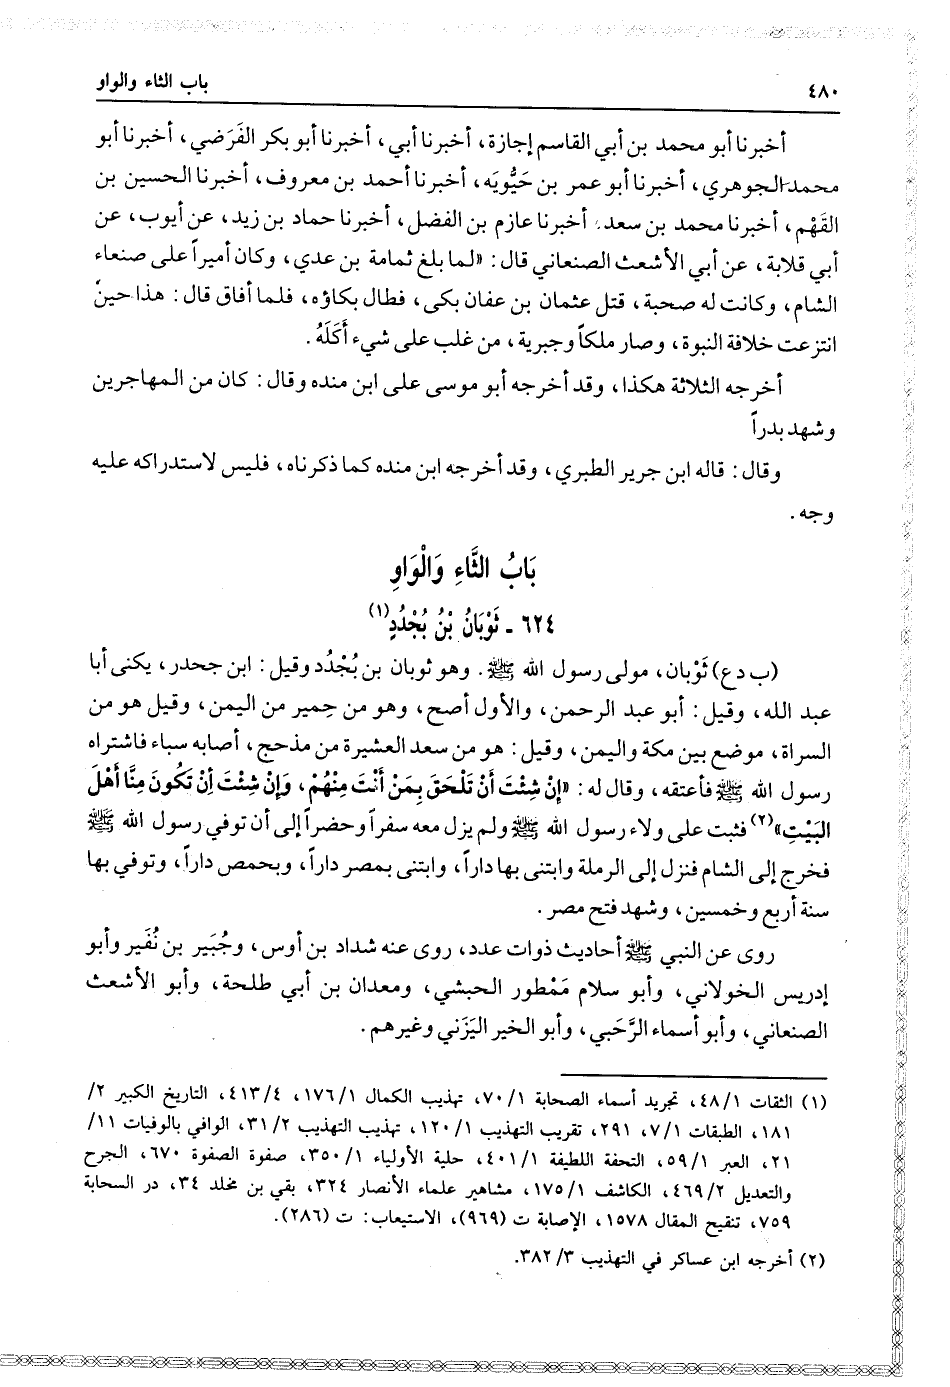 ٤٨٠
باب الثاء والواو
أخبرنا أبو محمد بن أبي القاسم إجازة، أخبرنا أبي، أخبرنا أبو بكر الفَرَضي، أخبرنا أبو
محمد الجوهري، أخبرنا أبو عمر بن حَيُّويَه، أخبرنا أحمد بن معروف، أخبرنا الحسين بن
القَهْم، أخبرنا محمد بن سعد، أخبرنا عازم بن الفضل، أخبرنا حماد بن زيد، عن أيوب، عن
أبي قلابة، عن أبي الأشعث الصنعاني قال: «لما بلغ ثمامة بن عدي، وكان أميراً على صنعاء
الشام، وكانت له صحبة، قتل عثمان بن عفان بكى، فطال بكاؤه، فلما أفاق قال: هذا حينَ
انتزعت خلافة النبوة، وصار ملكاً وجبرية، من غلب على شيء أَكَلَهُ.
أخرجه الثلاثة هكذا، وقد أخرجه أبو موسى على ابن منده وقال: كان من المهاجرين
وشهد بدراً
وقال: قاله ابن جرير الطبري، وقد أخرجه ابن منده كما ذكرناه، فليس لاستدراكه عليه
وجه.
بَابُ الثَّاءِ وَالْوَاوِ
٦٢٤ ـ ثَوْبَانُ بْنُ بُجْدُدٍ(١)
(ب د ع) ثَوْبان، مولى رسول الله ﷺ. وهو ثوبان بن بُجْدُد وقيل: ابن جحدر، يكنى أبا
عبد الله، وقيل: أبو عبد الرحمن، والأول أصح، وهو من حِمير من اليمن، وقيل هو من
السراة، موضع بين مكة واليمن، وقيل: هو من سعد العشيرة من مذحج، أصابه سباء فاشتراه
رسول الله ﷺ فأعتقه، وقال له: «إنْ شئْتَ أَنْ تَلْحَقَ بِمَنْ أَنْتَ مِنْهُمْ، وَإنْ شِئْتَ اِنْ تَكُونَ مِنَّا أَهْلَ
البَيْتِ»(٢) فثبت على ولاء رسول الله ﷺ ولم يزل معه سفراً وحضراً إلى أن توفي رسول الله ﷺ
فخرج إلى الشام فنزل إلى الرملة وابتنى بها داراً، وابتنى بمصر داراً، وبحمص داراً، وتوفي بها
سنة أربع وخمسين، وشهد فتح مصر.
روى عن النبي ﷺ أحاديث ذوات عدد، روى عنه شداد بن أوس، وجُبَير بن نُفَير وأبو
إدريس الخولاني، وأبو سلام مَمْطور الحبشي، ومعدان بن أبي طلحة، وأبو الأشعث
الصنعاني، وأبو أسماء الرَّحَبي، وأبو الخير اليَزَني وغيرهم.
(١) الثقات ٤٨/١، تجريد أسماء الصحابة ٧٠/١، تهذيب الكمال ١٧٦/١، ٤١٣/٤، التاريخ الكبير ٢/
١٨١، الطبقات ٧/١، ٢٩١، تقريب التهذيب ١٢٠/١، تهذيب التهذيب ٣١/٢، الوافي بالوفيات ١١/
٢١، العبر ٥٩/١، التحفة اللطيفة ٤٠١/١، حلية الأولياء ٣٥٠/١، صفوة الصفوة ٦٧٠، الجرح
والتعديل ٤٦٩/٢، الكاشف ١٧٥/١، مشاهير علماء الأنصار ٣٢٤، بقي بن مخلد ٣٤، در السحابة
٧٥٩، تنقيح المقال ١٥٧٨، الإصابة ت (٩٦٩)، الاستيعاب: ت (٢٨٦).
(٢) أخرجه ابن عساكر في التهذيب ٣/ ٣٨٢.